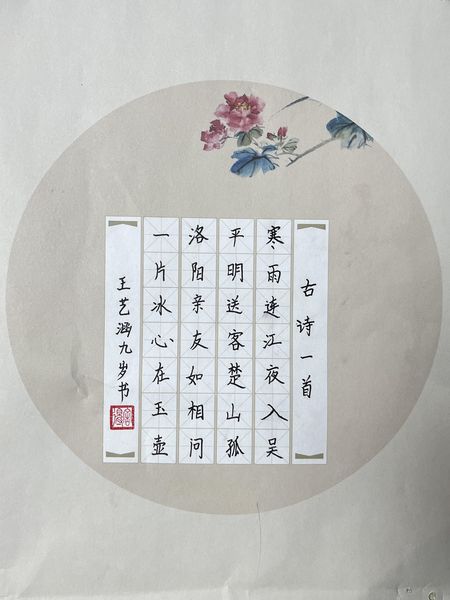 古诗一首
寒雨连江夜入吴
平明送客楚山孤
洛阳亲友如相问
一片冰心在玉壶
王艺涵九岁书